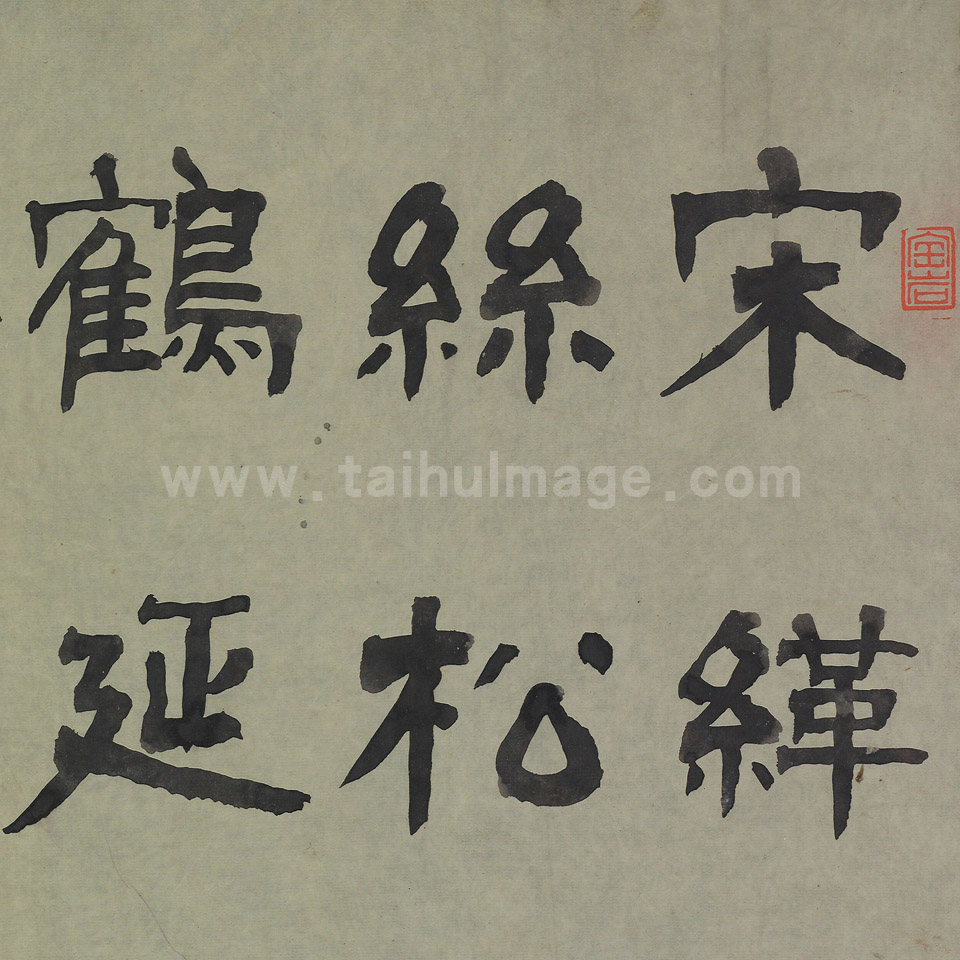 宋緙
絲松
鶴延
www.taihuImage.com